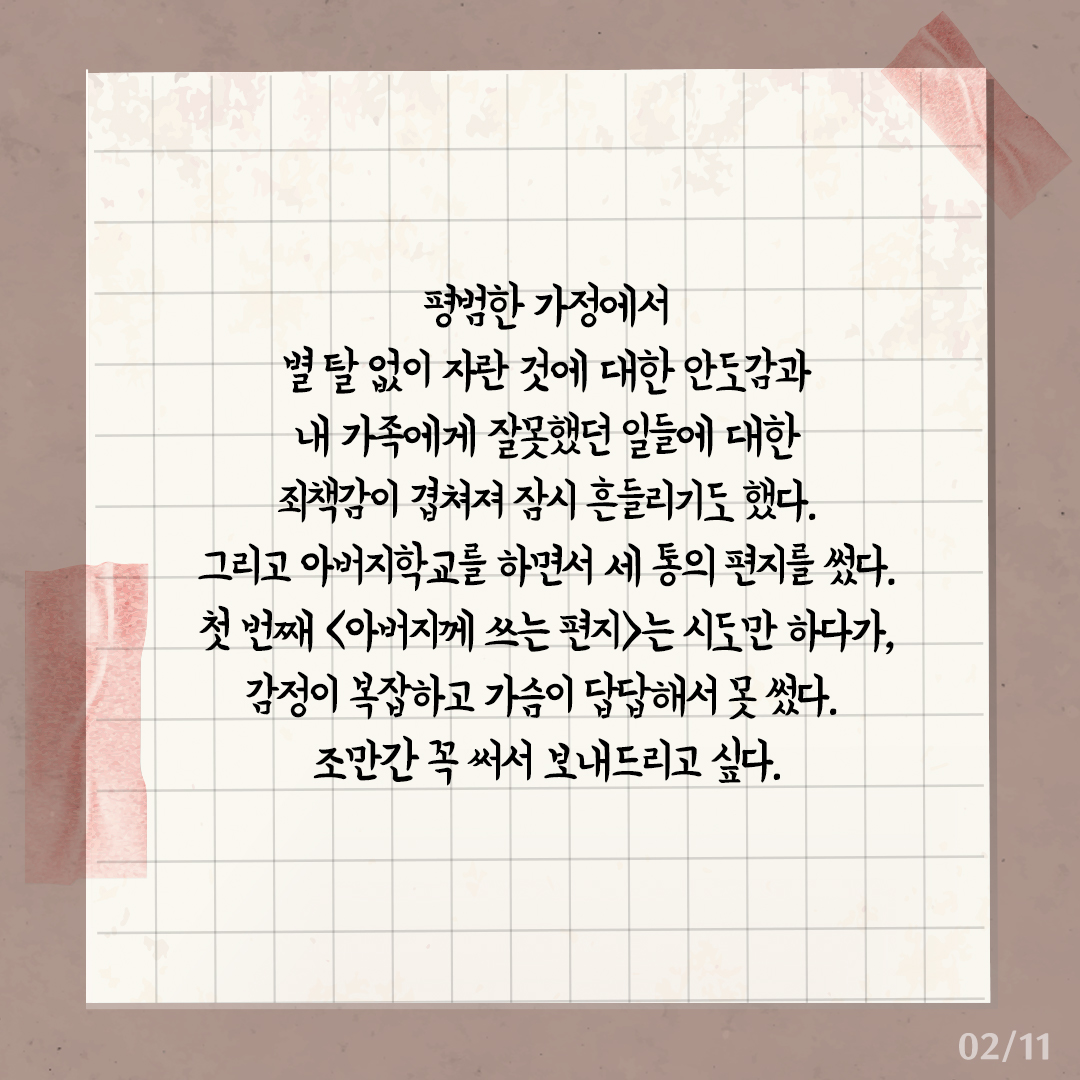 평범한 가정에서
별 탈 없이 자란 것에 대한 안도감과
내 가족에게 잘못했던 일들에 대한
죄책감이 겹쳐져 잠시 흔들리기도 했다.
그리고 아버지학교를 하면서 세 통의 편지를 썼다.
첫 번째 <아버지께 쓰는 편지>는 시도만 하다가,
감정이 복잡하고 가슴이 답답해서 못 썼다.
조만간 꼭 써서 보내드리고 싶다.
02/11